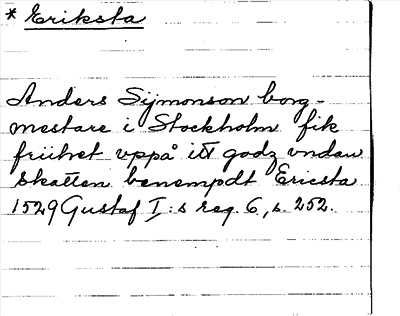 * Eriksta
Anders Sijmonson borg-
mestare i Stockholm fik
friihet vppå itt godz vndan
skatten benempdt Ericsta
1529 Gustaf I:s reg. 6, s. 252.